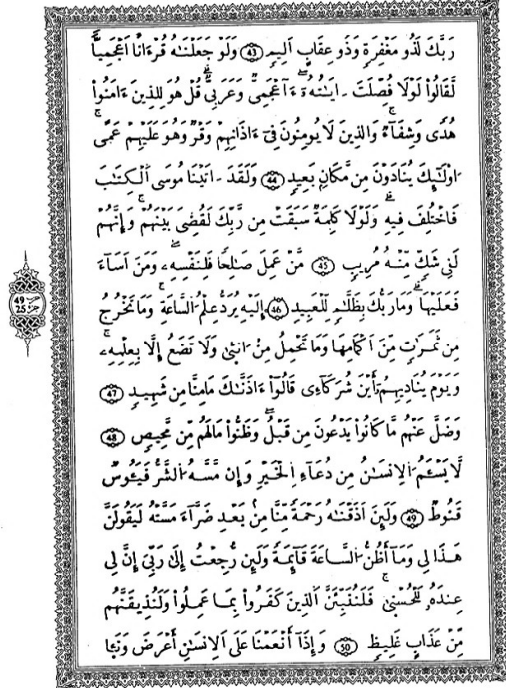 رَبَّكَ لَذُو مَغْفِرَةٍ وَذُو عِقَابٍ اَلِيمٍ ۝43 وَلَوْ جَعَلْنَٰهُ قُرْءَانًا اَعْجَمِيًّا
لَّقَالُواْ لَوْلَا فُصِّلَتَ ـ ايَٰتُهُۥٓ ءَآعْجَمِيٌّ وَعَرَبِيٌّ قُلْ هُوَ لِلذِينَ ءَامَنُواْ
هُدًى وَشِفَآءٌ وَالذِينَ لَا يُومِنُونَ فِےٓ ءَاذَانِهِمْ وَقْرٌ وَهُوَ عَلَيْهِمْ عَمًى
اوْلَٰٓئِكَ يُنَادَوْنَ مِن مَّكَانٍۢ بَعِيدٍ ۝44 وَلَقَدَ ـ اتَيْنَا مُوسَى اَلْكِتَٰبَ
فَاخْتُلِفَ فِيهِ وَلَوْلَا كَلِمَةٌ سَبَقَتْ مِن رَّبِّكَ لَقُضِيَ بَيْنَهُمْ وَإِنَّهُمْ
لَفِے شَكٍّ مِّنْهُ مُرِيبٍ ۝45 مَّنْ عَمِلَ صَٰلِحًا فَلِنَفْسِهِۦ وَمَنَ اَسَآءَ
فَعَلَيْهَا وَمَا رَبُّكَ بِظَلَّٰمٍ لِّلْعَبِيدِ ۝46 إِلَيْهِ يُرَدُّ عِلْمُ السَّاعَةِ وَمَا تَخْرُجُ
مِن ثَمَرَٰتٍ مِّنَ اَكْمَامِهَا وَمَا تَحْمِلُ مِنُ انث۪ىٰ وَلَا تَضَعُ إِلَّا بِعِلْمِهِۦ
وَيَوْمَ يُنَادِيهِمُۥٓ أَيْنَ شُرَكَآءِے قَالُوٓاْ ءَاذَنَّٰكَ مَا مِنَّا مِن شَهِيدٍ ۝47
وَضَلَّ عَنْهُم مَّا كَانُواْ يَدْعُونَ مِن قَبْلُ وَظَنُّواْ مَا لَهُم مِّن مَّحِيصٍ ۝48
لَّا يَسْـَٔمُ اُلِانسَٰنُ مِن دُعَآءِ اِلْخَيْرِ وَإِن مَّسَّهُ اُلشَّرُّ فَيَـُٔوسٌ
قَنُوطٌ ۝49 وَلَئِنَ اَذَقْنَٰهُ رَحْمَةً مِّنَّا مِنۢ بَعْدِ ضَرَّآءَ مَسَّتْهُ لَيَقُولَنَّ
هَٰذَا لِے وَمَآ أَظُنُّ اُلسَّاعَةَ قَآئِمَةً وَلَئِن رُّجِعْتُ إِلَىٰ رَبِّيَ إِنَّ لِے
عِندَهُۥ لَلْحُسْن۪ىٰ فَلَنُنَبِّئَنَّ اَلذِينَ كَفَرُواْ بِمَا عَمِلُواْ وَلَنُذِيقَنَّهُم
مِّنْ عَذَابٍ غَلِيظٍ ۝50 وَإِذَآ أَنْعَمْنَا عَلَى اَلِانسَٰنِ أَعْرَضَ وَنَـَٔا
حزب 49
جزء 25